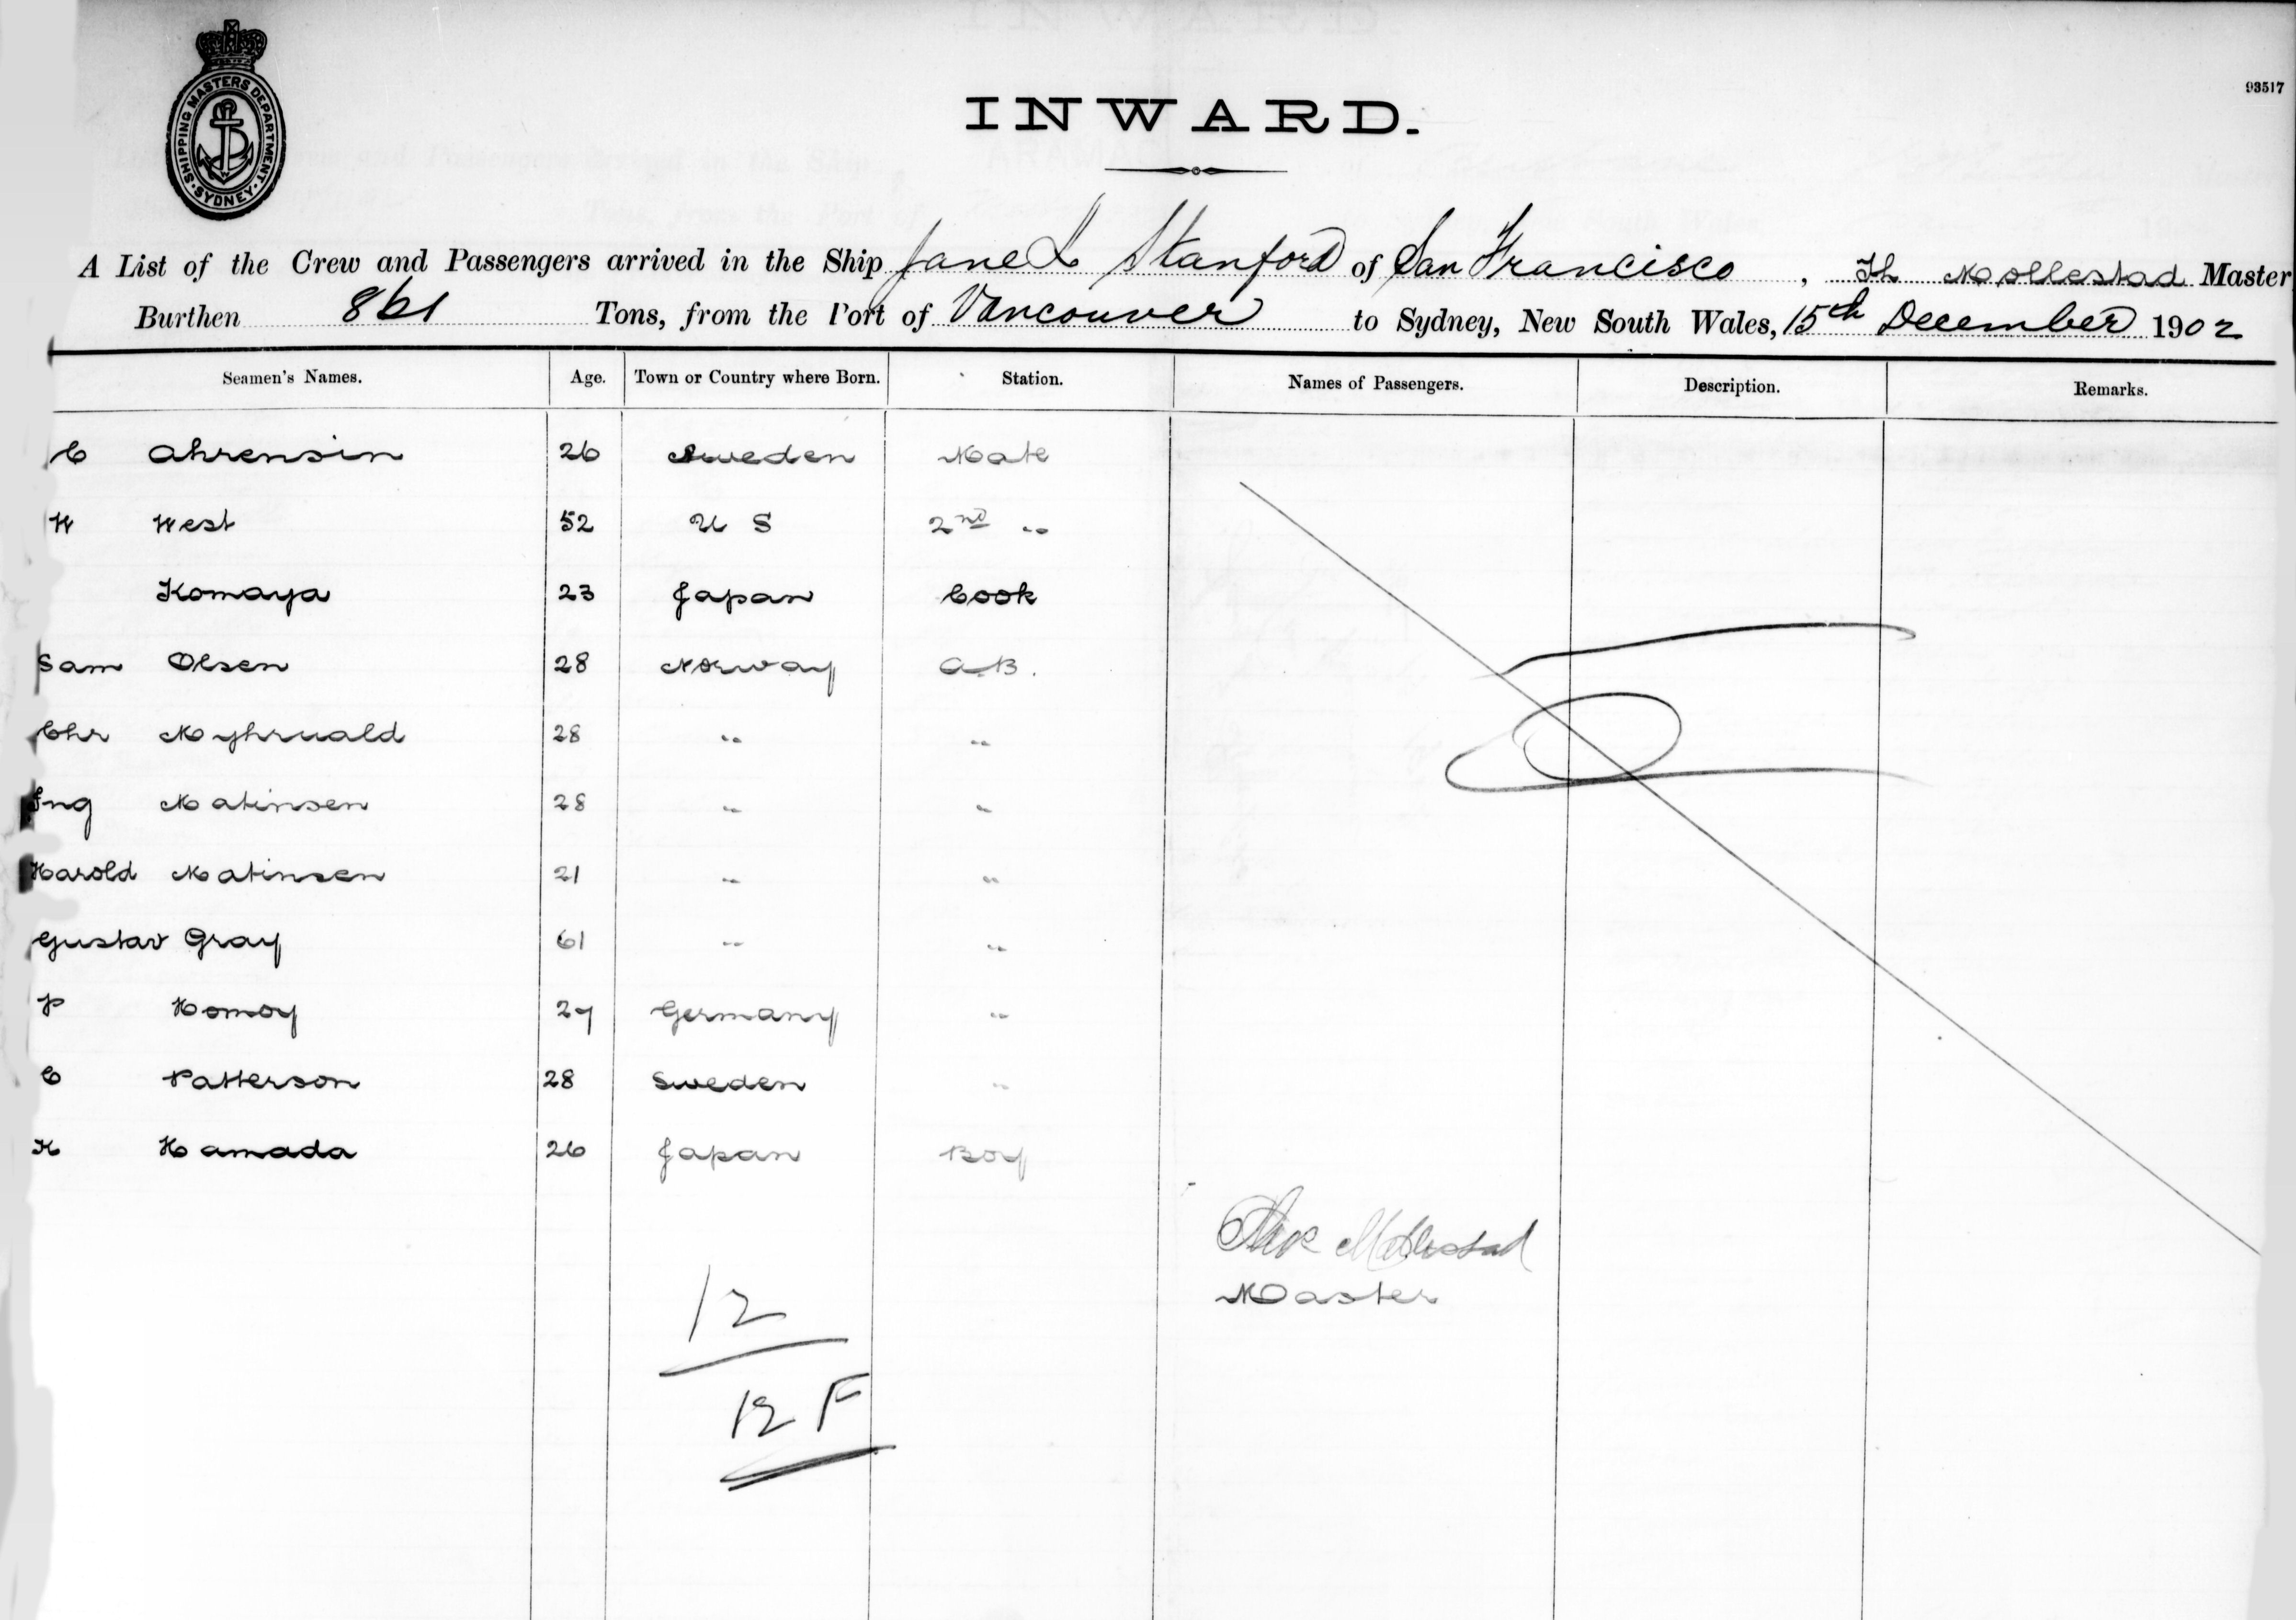 SHIPPING MASTERS DEPARTMENT. SYDNEY.
93517
INWARD.
A List of the Crew and Passengers arrived in the Ship Jane L Stanford of San Francisco, Th Mollestad Master
Burthen 861 Tons, from the Port of Vancouver to Sydney, New South Wales, 15th December 1902
Seamen's Names. Age. Town or Country where Born. Station. Names of Passengers. Description. Remarks.
C Ahrensin 26 Sweden Mate
W West 52 U S 2nd "
Komaya 23 Japan Cook
Sam Olsen 28 Norway A.B.
Chr Myhruald 28 " "
Ing Matinsen 28 " "
Harold Matinsen 21 " "
Gustav Gray 61 " "
P Homoy 27 Germany "
C Patterson 28 Sweden "
K Hamada 26 Japan Boy
Mollestad
Master
12
12 F